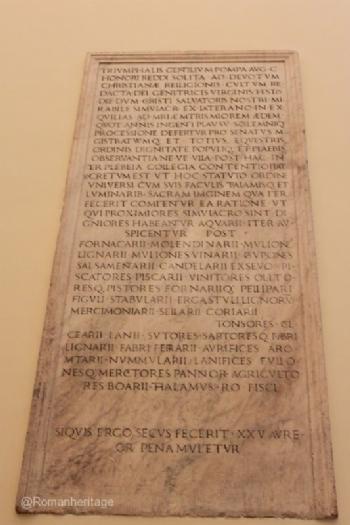 TRIVMPHALIS GENTILIVM POMPA AVG C
HONORI REDDI SOLITA AD DEVOTVM
CHRISTIANÆ RELIGIONIS CVLTVM RE
DACTA DEI GENITRICIS VIRGINIS FESTO
DIE DVM CRISTI SALVATORIS NOSTRI MI
RABILE SIMVLACR EX LATERANO IN EX
QVILIAS AD MRIÆ MTRIS MIOREM ÆDEM
QVOT ANNIS INGENTI PLAVSV SOLEMNIQ
PROCESSIONE DEFERTVR PRO SENATVS M
GISTRATVVMQ ET TOTIVS EQVESTRIS
ORDINIS DIGNITATE POPVLIQ ET PLÆBIS
OBSERVANTIA NE VLLA POST HAC IN
TER PLEBEIA COLLEGIA CONTENTIO
CRETVM EST VT HOC STATVTO ORDINE
VNIVERSI CVM SVIS FACVLIS TALAMISQ ET
LVMINARIB SACRAM IMGINEM QVA ITER
FECERIT COMITENTVR EA RATIONE VT
QVI PROXIMIORES SIMVLACRO SINT DI
GNIORES HABEANTVR AQVARII ITER AV
SPICENTVR POST
FORNACARII MOLENDINARII MVLION
LIGNARII MVLIONES VINARII BVBVLCI
SALSAMENARII CANDELARII EXSEVO PI
SCATORES PISCARII VINITORES OLITO
RESQ PISTORES FORNARIIQ PELLIPARI
FIGVLI STABVLARII ERGASTVLI
MERCIMONIARII SELLARII CORIARII
TONSORES
CEARII LANII SVTORES SARTORESQ FABRI
LIGNARII FABRI FERARII AVRIFICES ARO
MTARII NVMMVLARII LANIFICES FVLLO
NESQ MERCTORES PANNOR AGRICVLTO
RES BOARII THALAMVS RO FISCI
SIQVIS ERGO SECVS FECERIT XXV AVRE
OR PENA MVLETVR
@Romanheritage